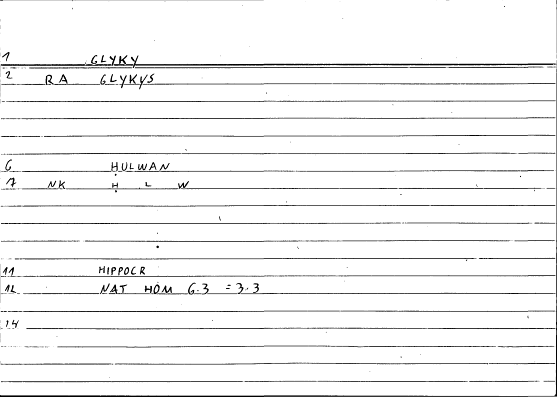 1 GLYKY
2 RA GLYKYS
6 ḤULWAN
7 NK Ḥ L W
11 HIPPOCR
12 NAT HOM 6.3 =3.3
14